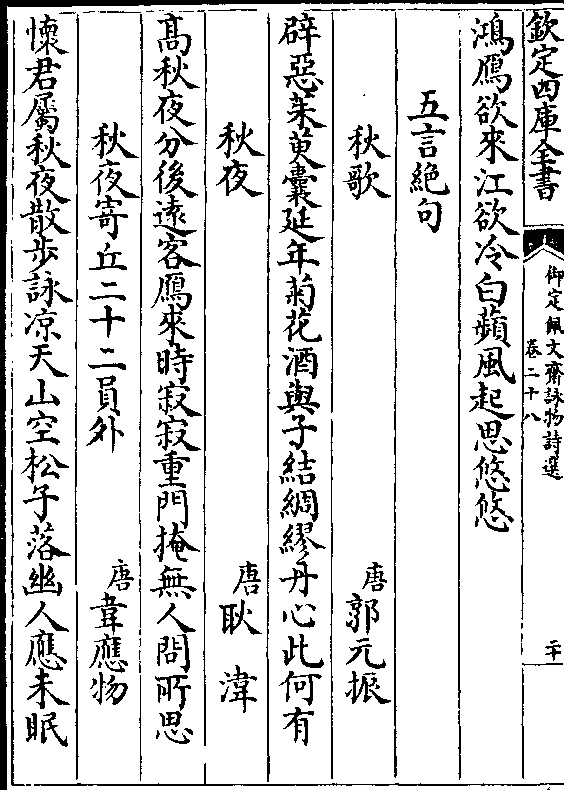 欽定四庫全書
御定佩文齋詠物詩選
卷二十八
二十
鴻鴈欲來江欲冷白蘋風起思悠悠
五言絶句
秋歌 唐 郭元振
辟惡茱萸囊延年菊花酒與子結綢繆丹心此何有
秋夜 唐 耿湋
高秋夜分後遠客鴈來時寂寂重門掩無人問所思
秋夜寄丘二十二員外 唐 韋應物
懷君屬秋夜散步詠凉天山空松子落幽人應未眠